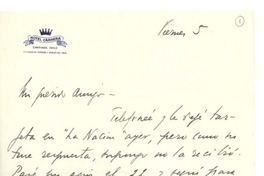 HOTEL CARRERA
SANTIAGO, CHILE
Viernes 5
1
Mi querido Amigo -
Telefoneé y le dejé tar-
jeta en "La Nación" ayer, pero como no
tuve respuesta, supongo no la recibió.
Pasé por aquí el 22 y